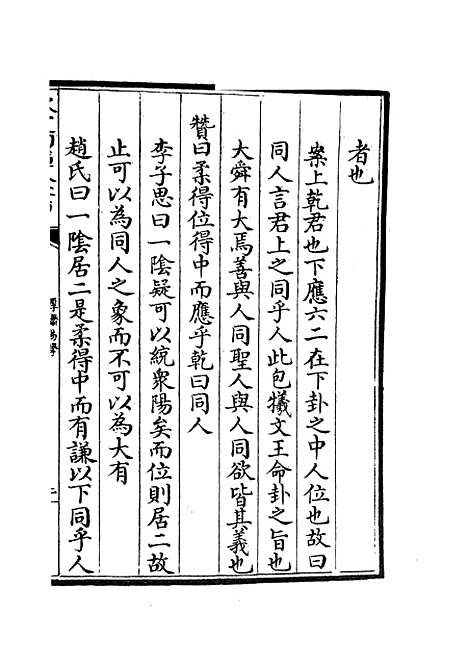 者也
案上乾君也下應六二在下卦之中人位也故曰
同人言君上之同乎人此包犧文王命卦之旨也
大舜有大焉善與人同聖人與人同欲皆其義也
贊曰柔得位得中而應乎乾曰同人
李子思曰一陰疑可以統衆陽矣而位則居二故
止可以為同人之象而不可以為大有
趙氏曰一陰居二是柔得中而有謙以下同乎人